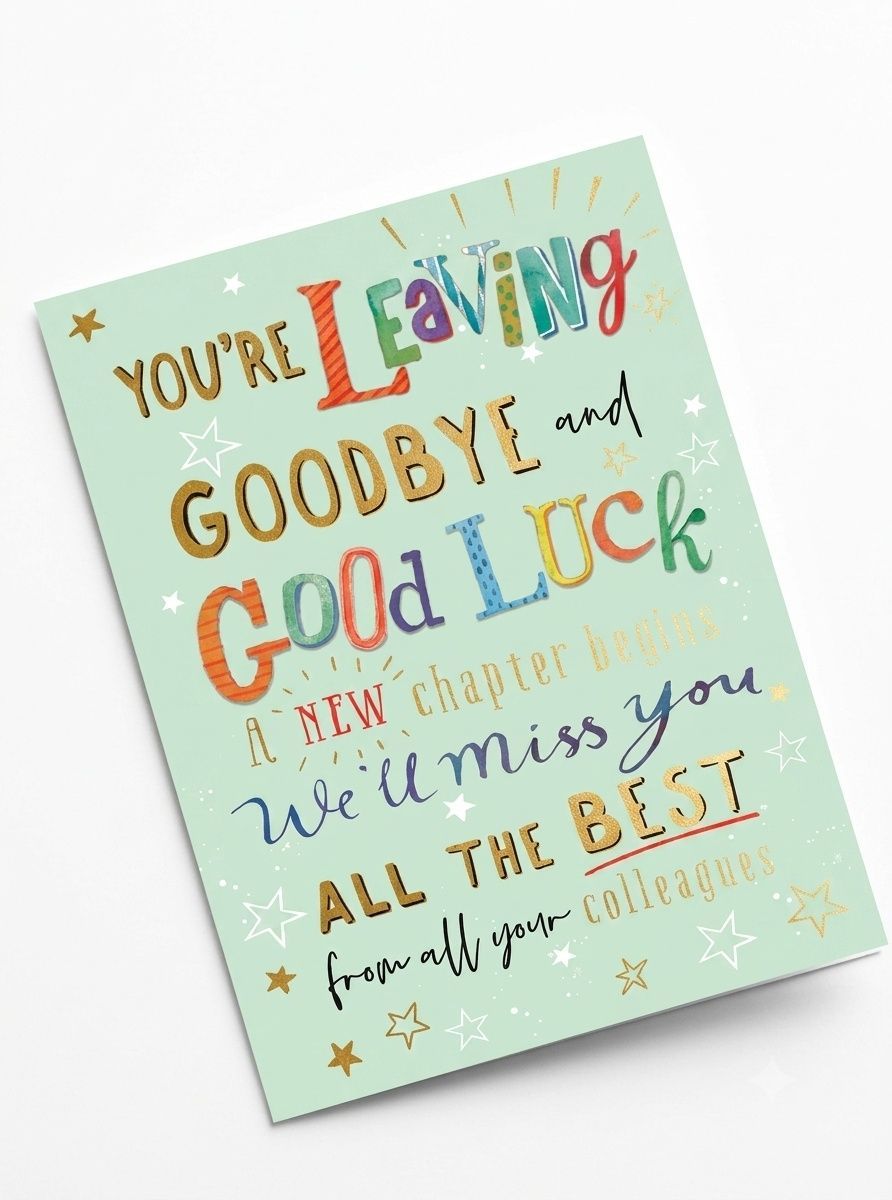 YOU'RE LEAVING
GOODBYE and
GOOD LUCK
A NEW chapter begins
We'll miss you
ALL THE BEST
from all your colleagues